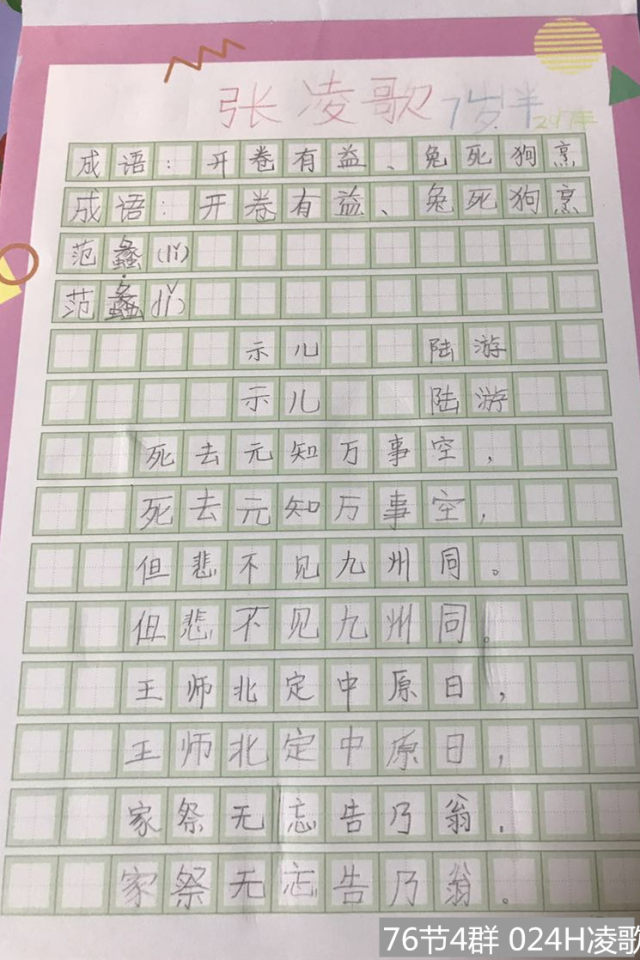 张凌歌 7岁半
成语：开卷有益、兔死狗烹
成语：开卷有益、兔死狗烹
范蠡(lǐ)
范蠡(lǐ)
示儿 陆游
示儿 陆游
死去元知万事空，
死去元知万事空，
但悲不见九州同。
但悲不见九州同。
王师北定中原日，
王师北定中原日，
家祭无忘告乃翁.
家祭无忘告乃翁。
76节4群 024H凌歌